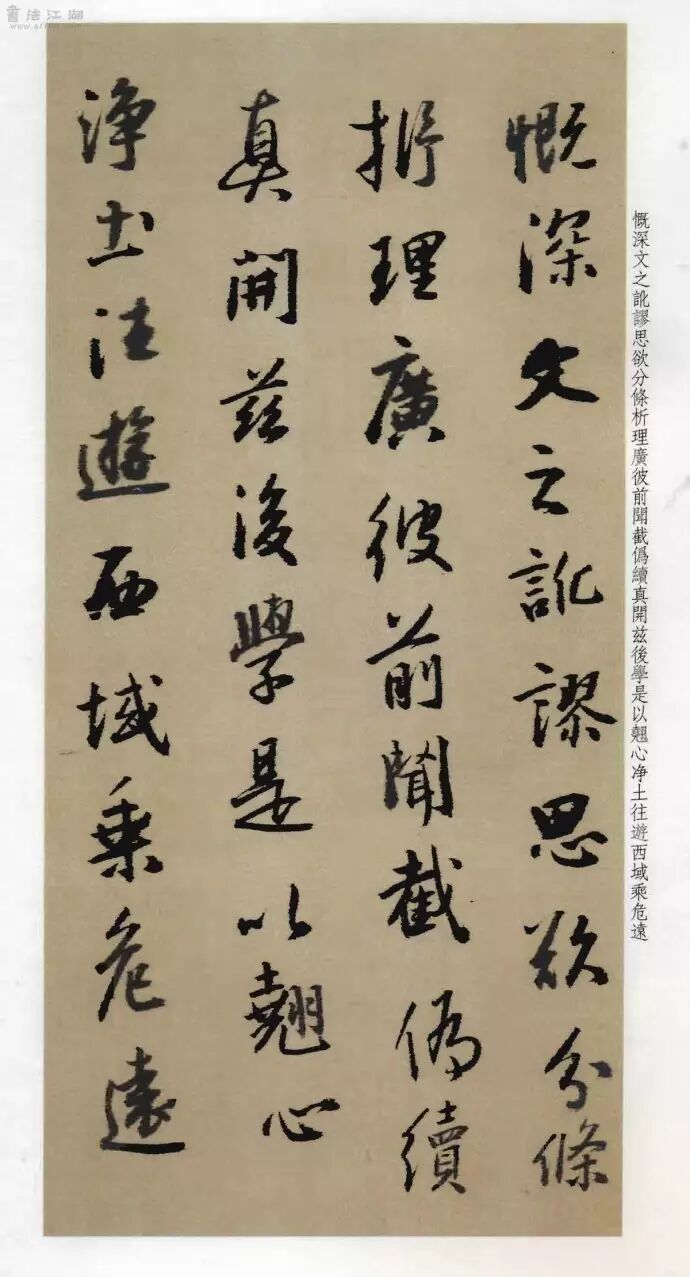 書法江湖
慨深文之訛謬思欲分條
析理廣彼前聞截偽續
真開茲後學是以翹心
淨土法遊西域乘危遠
慨深文之訛謬思欲分條析理廣彼前聞截僞續真開兹後學是以翹心净土往遊西域乘危遠